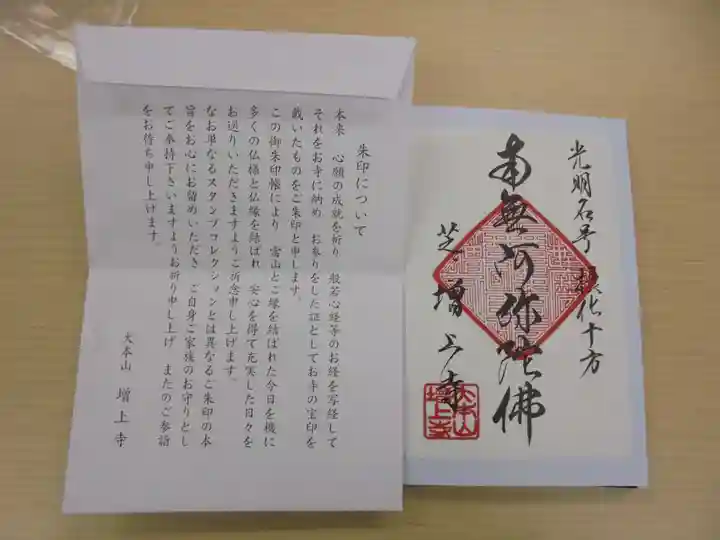 朱印について
本来 心願の成就を祈り 般若心経等のお経を写経して
それをお寺に納め お参りをした証としてお寺の宝印を
戴いたものをご朱印と申します。
この御朱印帳により 当山とご縁を結ばれた今日を機に
多くの仏様と仏縁を結ばれ 安心を得て充実した日々を
お送りいただきますようご祈念申し上げます。
なお単なるスタンプコレクションとは異なるご朱印の本
旨をお心にお留めいただき ご自身ご家族のお守りとし
てご奉持下さいますようお祈り申し上げ またのご参詣
をお待ち申し上げます。
大本山 増上寺
光明名号 摂化十方
南無阿弥陀佛
芝 増上寺
大本山
増上寺